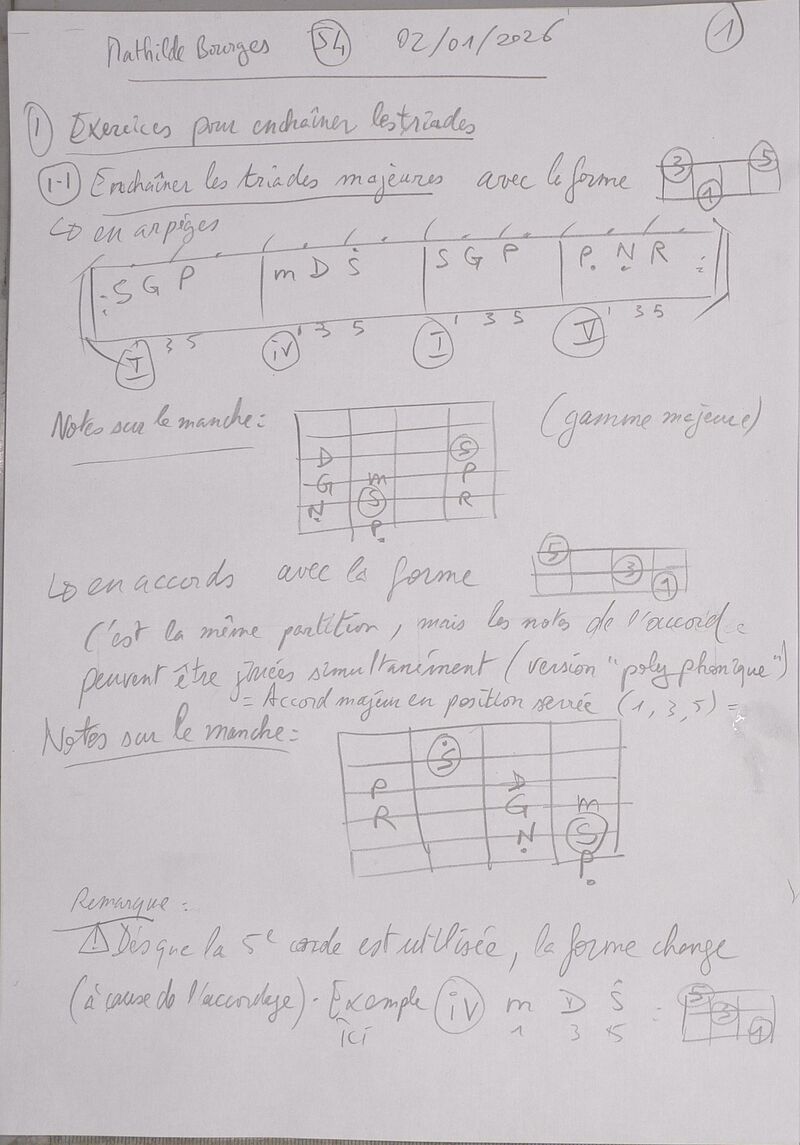 Mathilde Bourges S4 02/01/2026 1
1 Exercices pour enchaîner les triades
1-1 Enchaîner les triades majeures avec la forme 3 1 5
↳ en arpèges
: S G P m D Ṡ S G P Ṗ Ṇ R :
I 1 3 5 iv 1 3 5 I 1 3 5 V 1 3 5
Notes sur le manche : (gamme majeure)
D S
G m P
Ṇ S R
P.
↳ en accords avec la forme 5 3 1
C'est la même partition, mais les notes de l'accord
peuvent être jouées simultanément (version "polyphonique")
= Accord majeur en position serrée (1, 3, 5) =
Notes sur le manche :
Ṡ
P D
R G m
Ṇ S
P.
Remarque :
⚠ Dès que la 5e corde est utilisée, la forme change
(à cause de l'accordage). Exemple iv m D Ṡ : 5 3 1
ici 1 3 5